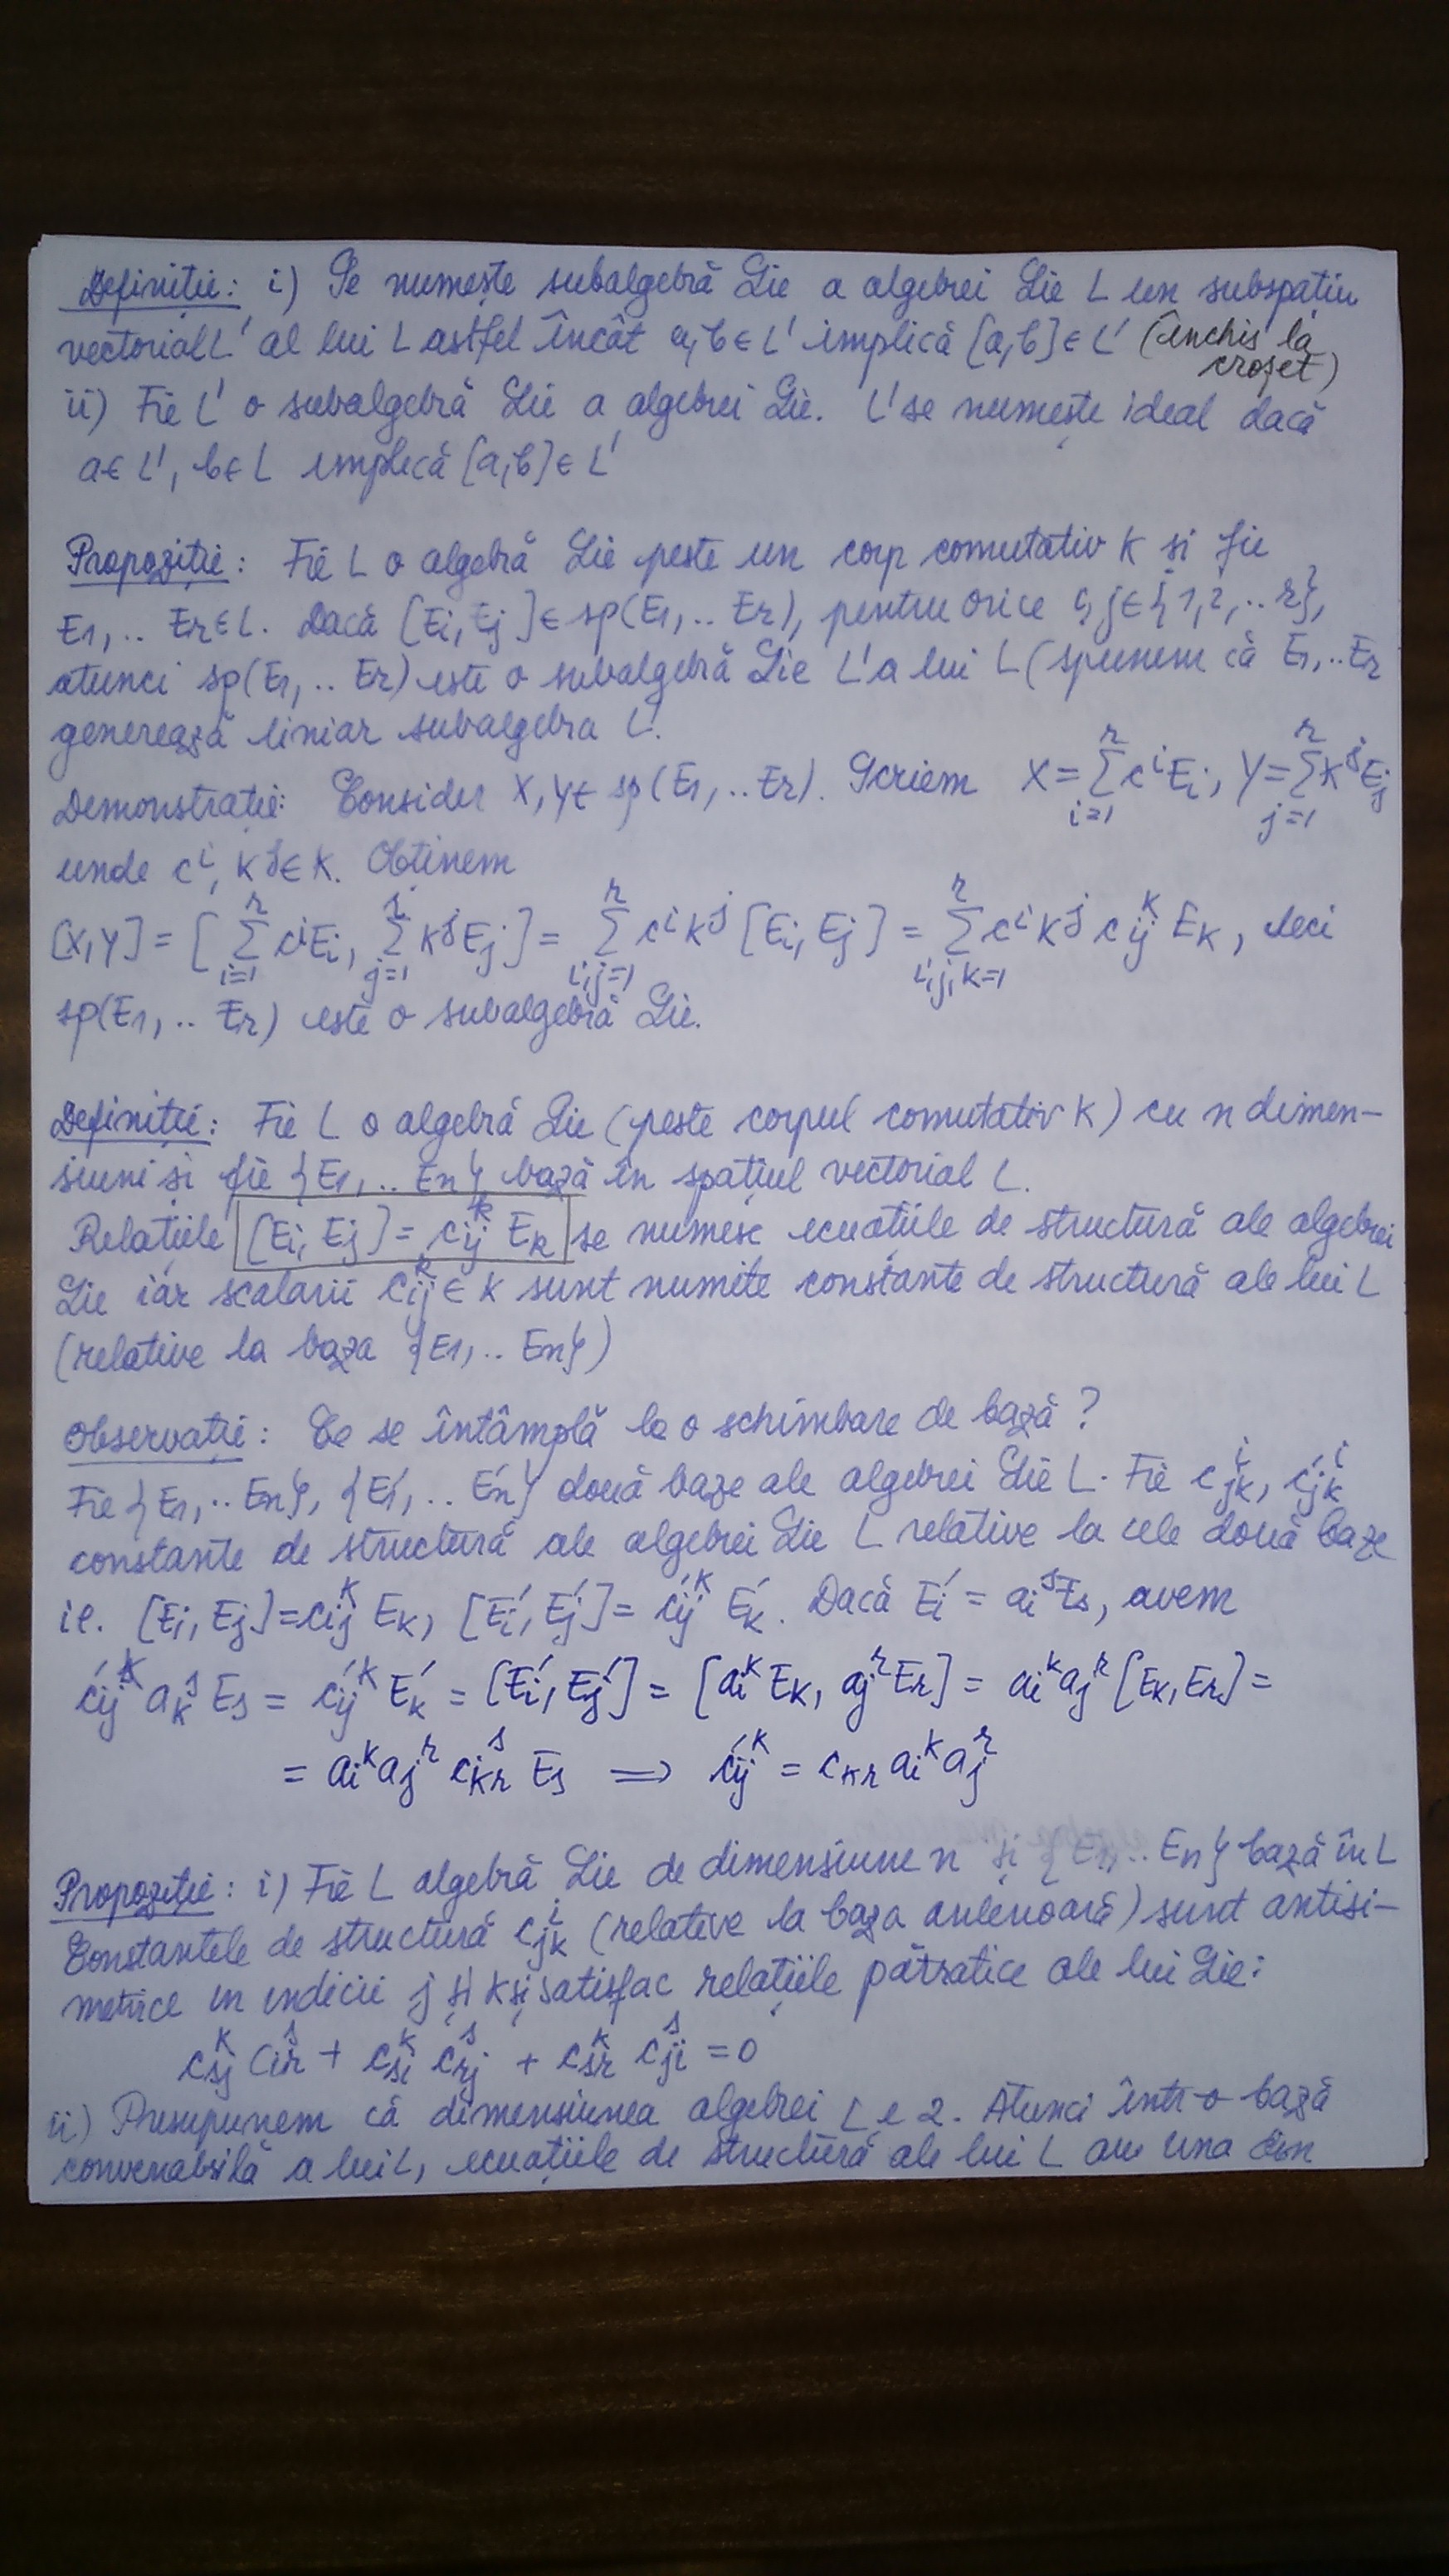 Definiție: i) Se numește subalgebră Lie a algebrei Lie L un subspațiu
vectorial L' al lui L astfel încât a,b ∈ L' implică [a,b] ∈ L' (închis la
croșet)
ii) Fie L' o subalgebră Lie a algebrei Lie. L' se numește ideal dacă
a ∈ L', b ∈ L implică [a,b] ∈ L'
Propoziție: Fie L o algebră Lie peste un corp comutativ K și fie
E1,.. Er ∈ L. Dacă [Ei, Ej] ∈ sp(E1,.. Er), pentru orice i,j ∈ {1,2,.. r},
atunci sp(E1,.. Er) este o subalgebră Lie L' a lui L (spunem că E1,..Er
generează liniar subalgebra L'.
Demonstrație: Consider X, Y ∈ sp(E1,..Er). Scriem X = Σ_{i=1}^{r} c^i E_i, Y = Σ_{j=1}^{r} k^j E_j
unde c^i, k^j ∈ K. Obținem
[X,Y] = [Σ_{i=1}^{r} c^i E_i, Σ_{j=1}^{r} k^j E_j] = Σ_{i,j=1}^{r} c^i k^j [Ei, Ej] = Σ_{i,j,k=1}^{r} c^i k^j c_{ij}^k E_k, deci
sp(E1,.. Er) este o subalgebră Lie.
Definiție: Fie L o algebră Lie (peste corpul comutativ K) cu n dimen-
siuni și fie {E1,.. En} bază în spațiul vectorial L.
Relațiile [Ei, Ej] = c_{ij}^k E_k se numesc ecuațiile de structură ale algebrei
Lie iar scalarii c_{ij}^k ∈ K sunt numite constante de structură ale lui L
(relative la baza {E1,.. En})
Observație: Ce se întâmplă la o schimbare de bază?
Fie {E1,.. En}, {E1',.. En'} două baze ale algebrei Lie L. Fie c_{jk}^i, c'_{jk}^i
constante de structură ale algebrei Lie L relative la cele două baze
ie. [Ei, Ej] = c_{ij}^k E_k, [Ei', Ej'] = c'_{ij}^k E_k'. Dacă Ei' = a_i^s E_s, avem
c'_{ij}^k a_k^s E_s = c'_{ij}^k E_k' = [Ei', Ej'] = [a_i^k E_k, a_j^r E_r] = a_i^k a_j^r [E_k, E_r] =
= a_i^k a_j^r c_{kr}^s E_s ⟹ c'_{ij}^k = c_{kr} a_i^k a_j^r
Propoziție: i) Fie L algebră Lie de dimensiune n și {E1,.. En} bază în L
Constantele de structură c_{jk}^i (relative la baza anterioară) sunt antisi-
metrice în indicii j și k și satisfac relațiile pătratice ale lui Lie:
c_{sj}^k c_{ir}^s + c_{si}^k c_{rj}^s + c_{sr}^k c_{ji}^s = 0
ii) Presupunem că dimensiunea algebrei L e 2. Atunci într-o bază
convenabilă a lui L, ecuațiile de structură ale lui L au una din